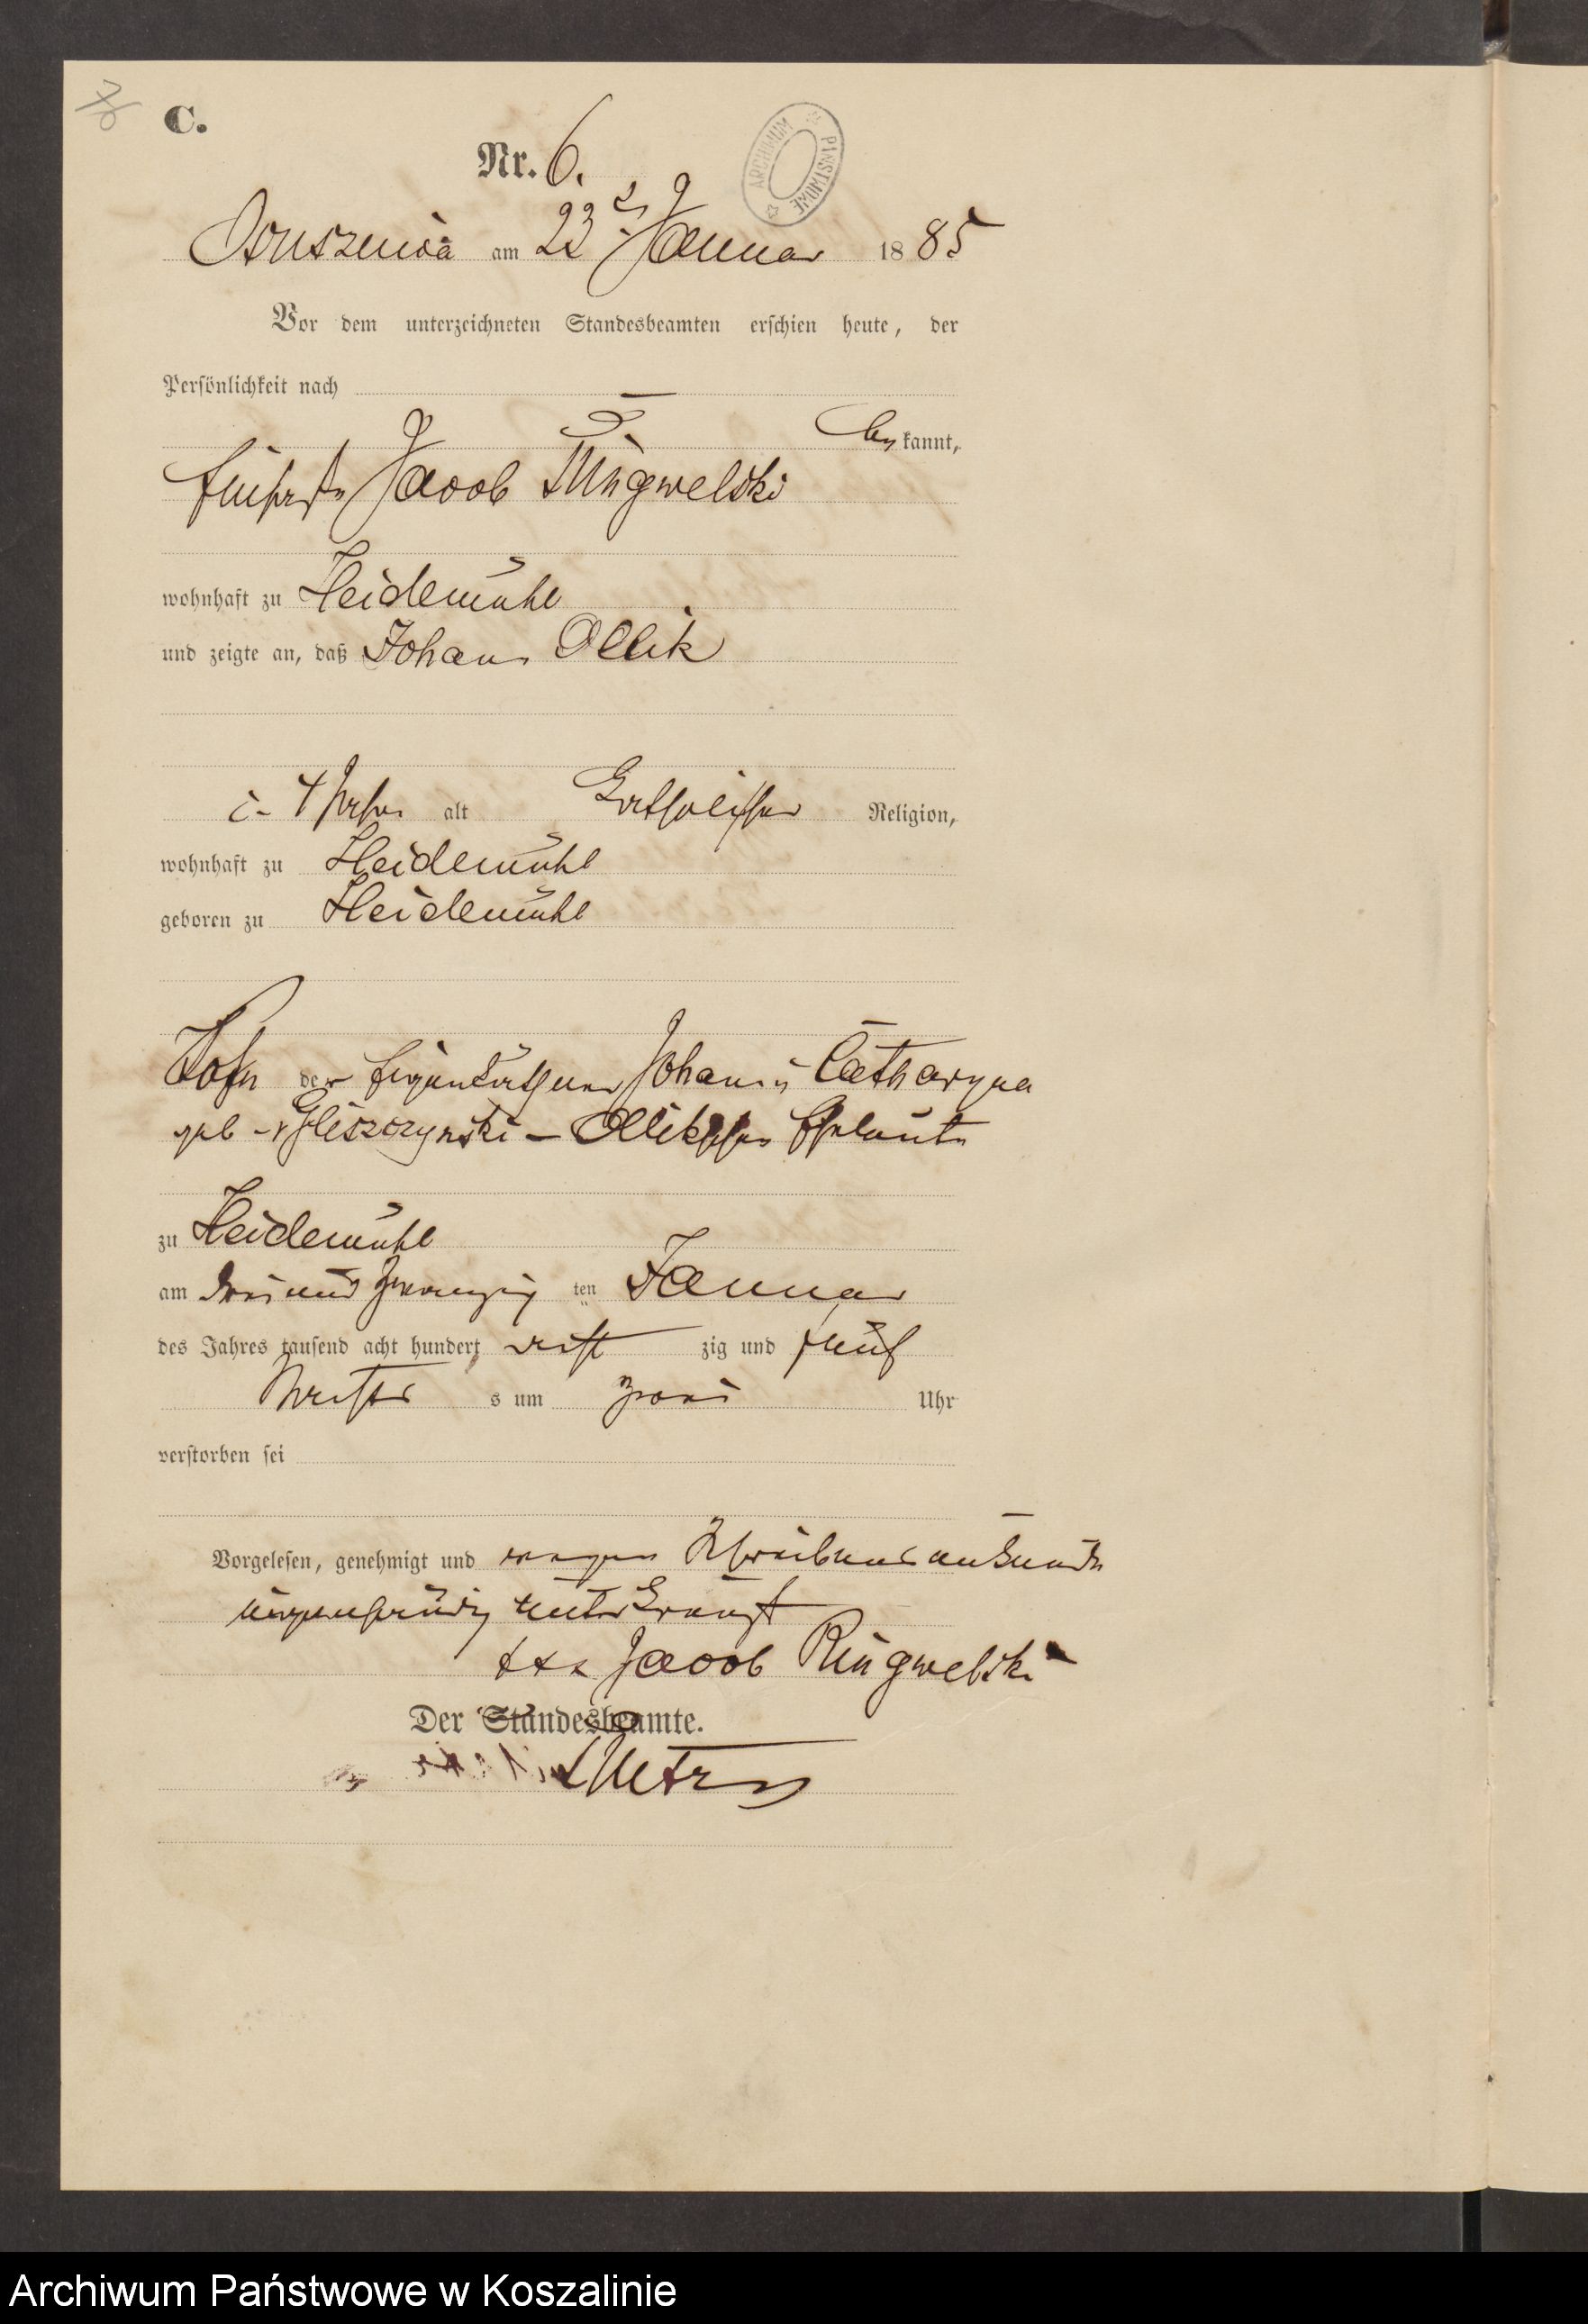 C.
Nr. 6.
ARCHIWUM PAŃSTWOWE
am 23 Januar 1885
Vor dem unterzeichneten Standesbeamten erschien heute, der
Persönlichkeit nach
be kannt,
Jacob Ringwelski
wohnhaft zu Heidemühl
und zeigte an, daß Johann Ollik
alt Katholischer Religion,
wohnhaft zu Heidemühl
geboren zu Heidemühl
Sohn der Eigenthümer Johann u Catharyna
geb v Gliszczynski - Ollikschen Eheleute
zu Heidemühl
am drei und zwanzig ten Januar
des Jahres tausend acht hundert acht zig und fünf
Nachts s um zwei Uhr
verstorben sei
Vorgelesen, genehmigt und wegen Schreibensunkunde
unterkreuzt
xxx Jacob Ringwelski
Der Standesbeamte.
Archiwum Państwowe w Koszalinie